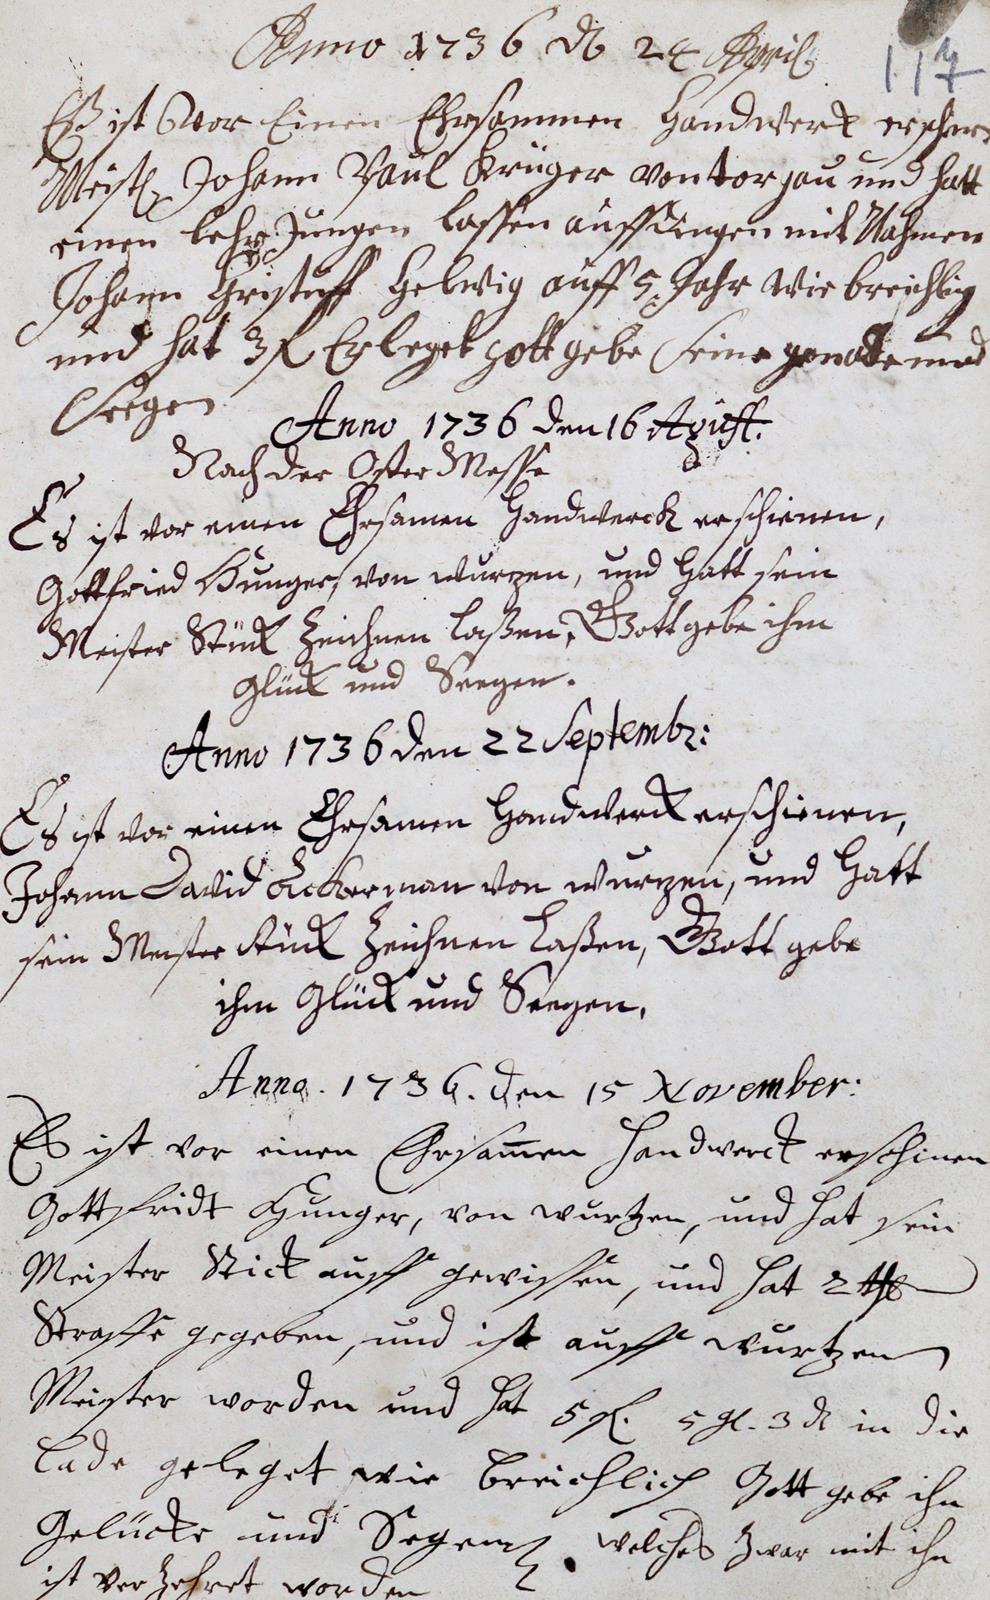 Anno 1736 d 24 April
117
Es ist vor Einen Ehrsammen Handwerk erschien
Meist Johann Paul Krüger von torgau und hatt
einen lehr Jungen lassen auffdingen mit Nahmen
Johann Gristuff Helwig auff 5 Jahr wie breichlig
und hat 3 fl Erleget gott gebe seine genade und
Seegen
Anno 1736 den 16 Aguſt:
Nach der Oster Messe
Es ist vor einen Ehrsamen Handwerck erschienen,
Gottfried Hunger, von wurzen, und Hatt sein
Meister Stück Zeichnen laßen, Gott gebe ihm
Glück und Seegen.
Anno 1736 den 22 Septembr:
Es ist vor einen Ehrsamen Handwerck erschienen,
Johann David Ackerman von wurzen, und Hatt
sein Meister stück Zeichnen Laßen, Gott gebe
ihm Glück und Seegen,
Anno. 1736. den 15 November:
Es ist vor einen Ehrsam̅en Handwerck erschinen
Gottfridt Hunger, von wurtzen, und hat sein
Meister Stick auff gewissen, und hat 2 thl
Straffe gegeben, und ist auff wurtzen
Meister worden und hat 5 fl. 5 gl. 3 d in die
Lade geleget wie breichlich Gott gebe ihn
Gelücke und Segen welches zwar mit ihn
ist ver Zehret worden